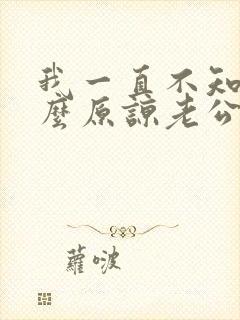 我一直不知
麼原諒老公
蘿啵